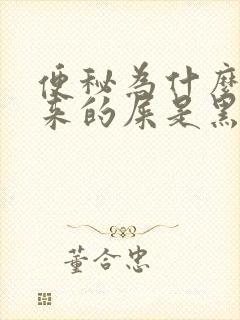 便秘为什麽
来的屎是黑
董合忠